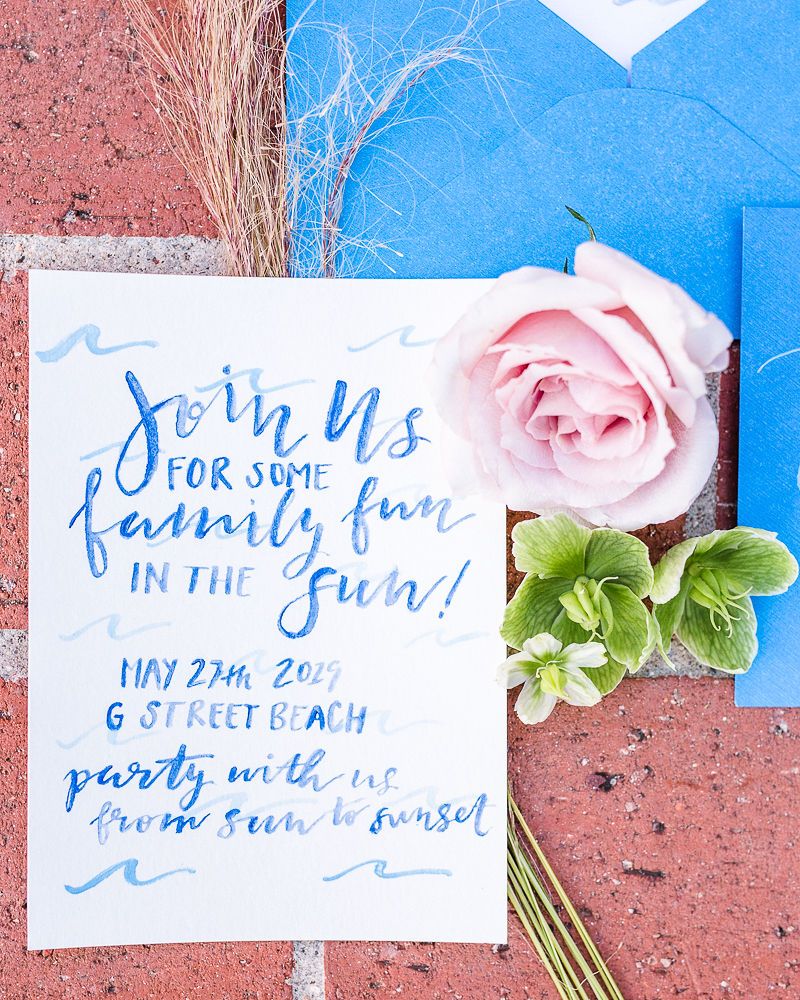 Join us
FOR SOME
family fun
IN THE sun!
MAY 27th 2029
G STREET BEACH
party with us
from sun to sunset